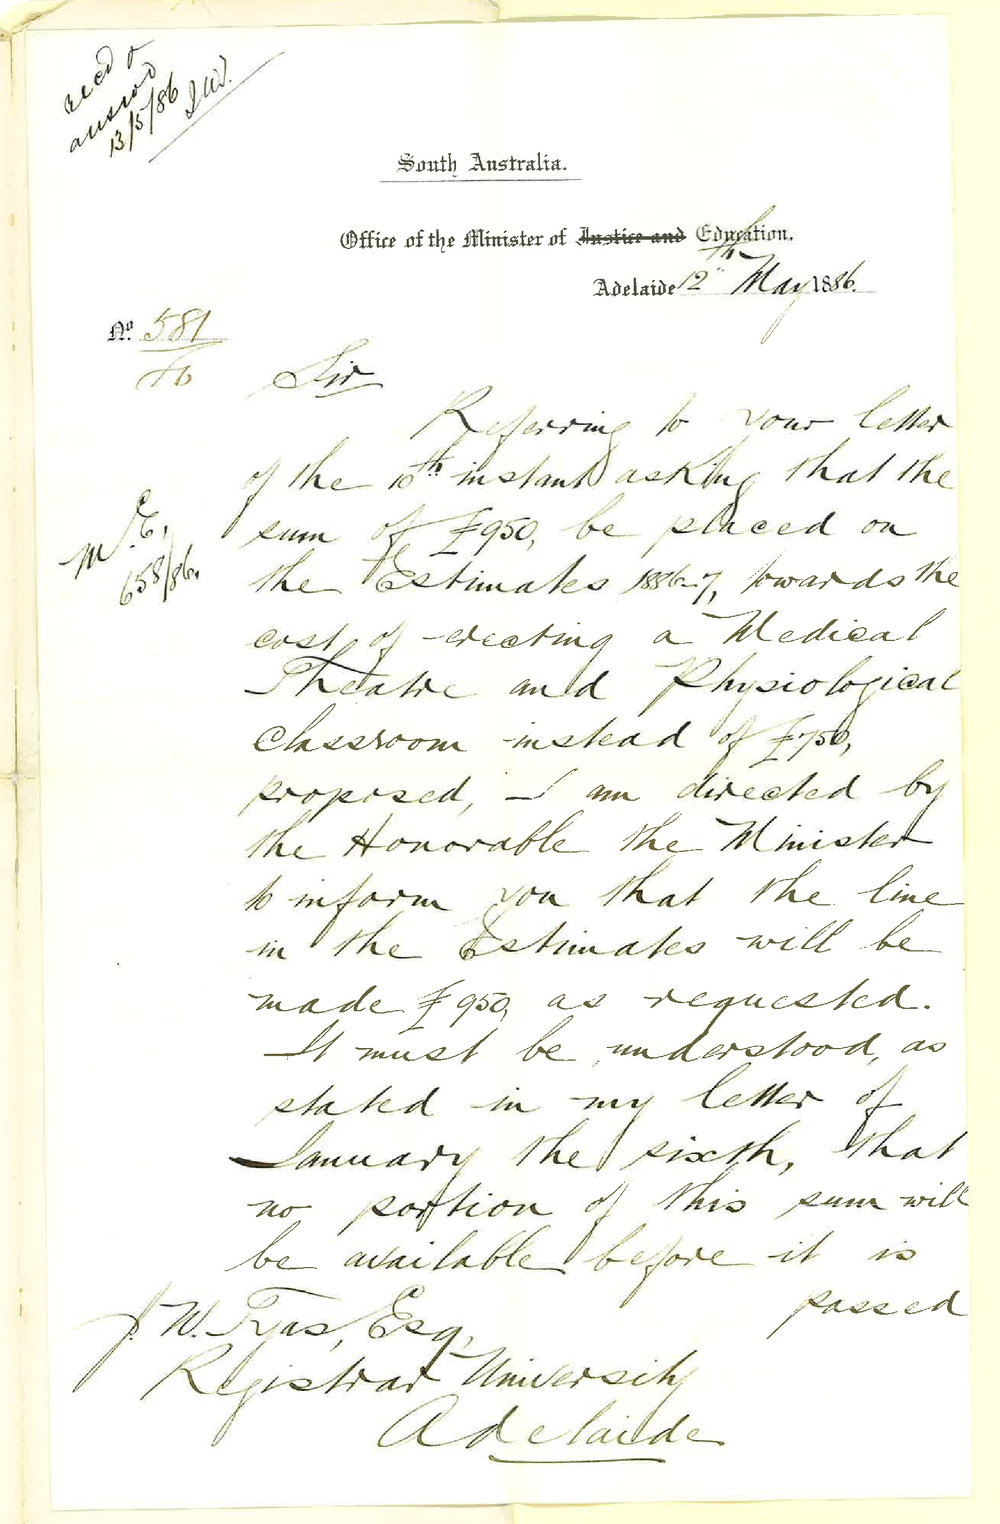 recd &
answd
13/5/86
South Australia.
Office of the Minister of Justice and Education.
Adelaide 12th May 1886.
No. 581
86
Sir
Referring to your letter
of the 10th instant asking that the
sum of £950, be placed on
the Estimates 1886-7, towards the
M.E.
658/86.
cost of erecting a Medical
Theatre and Physiological
Classroom instead of £750,
proposed, I am directed by
the Honorable the Minister
to inform you that the line
in the Estimates will be
made £950, as requested.
It must be understood, as
stated in my letter of
January the sixth, that
no portion of this sum will
be available before it is
passed
J. W. Tyas, Esq,
Registrar University
Adelaide